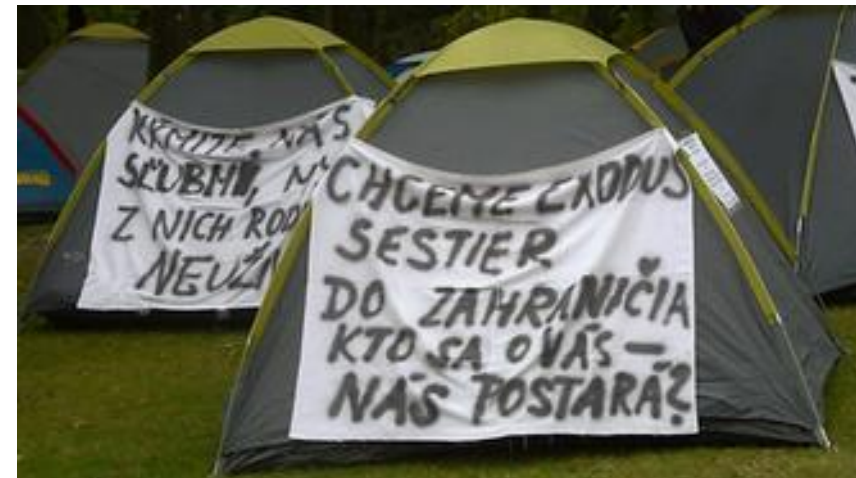 KŔMITE NÁS
SĽUBMI,
Z NICH
CHCEME EXODUS
SESTIER
DO ZAHRANIČIA
KTO SA O VÁS –
NÁS POSTARÁ?